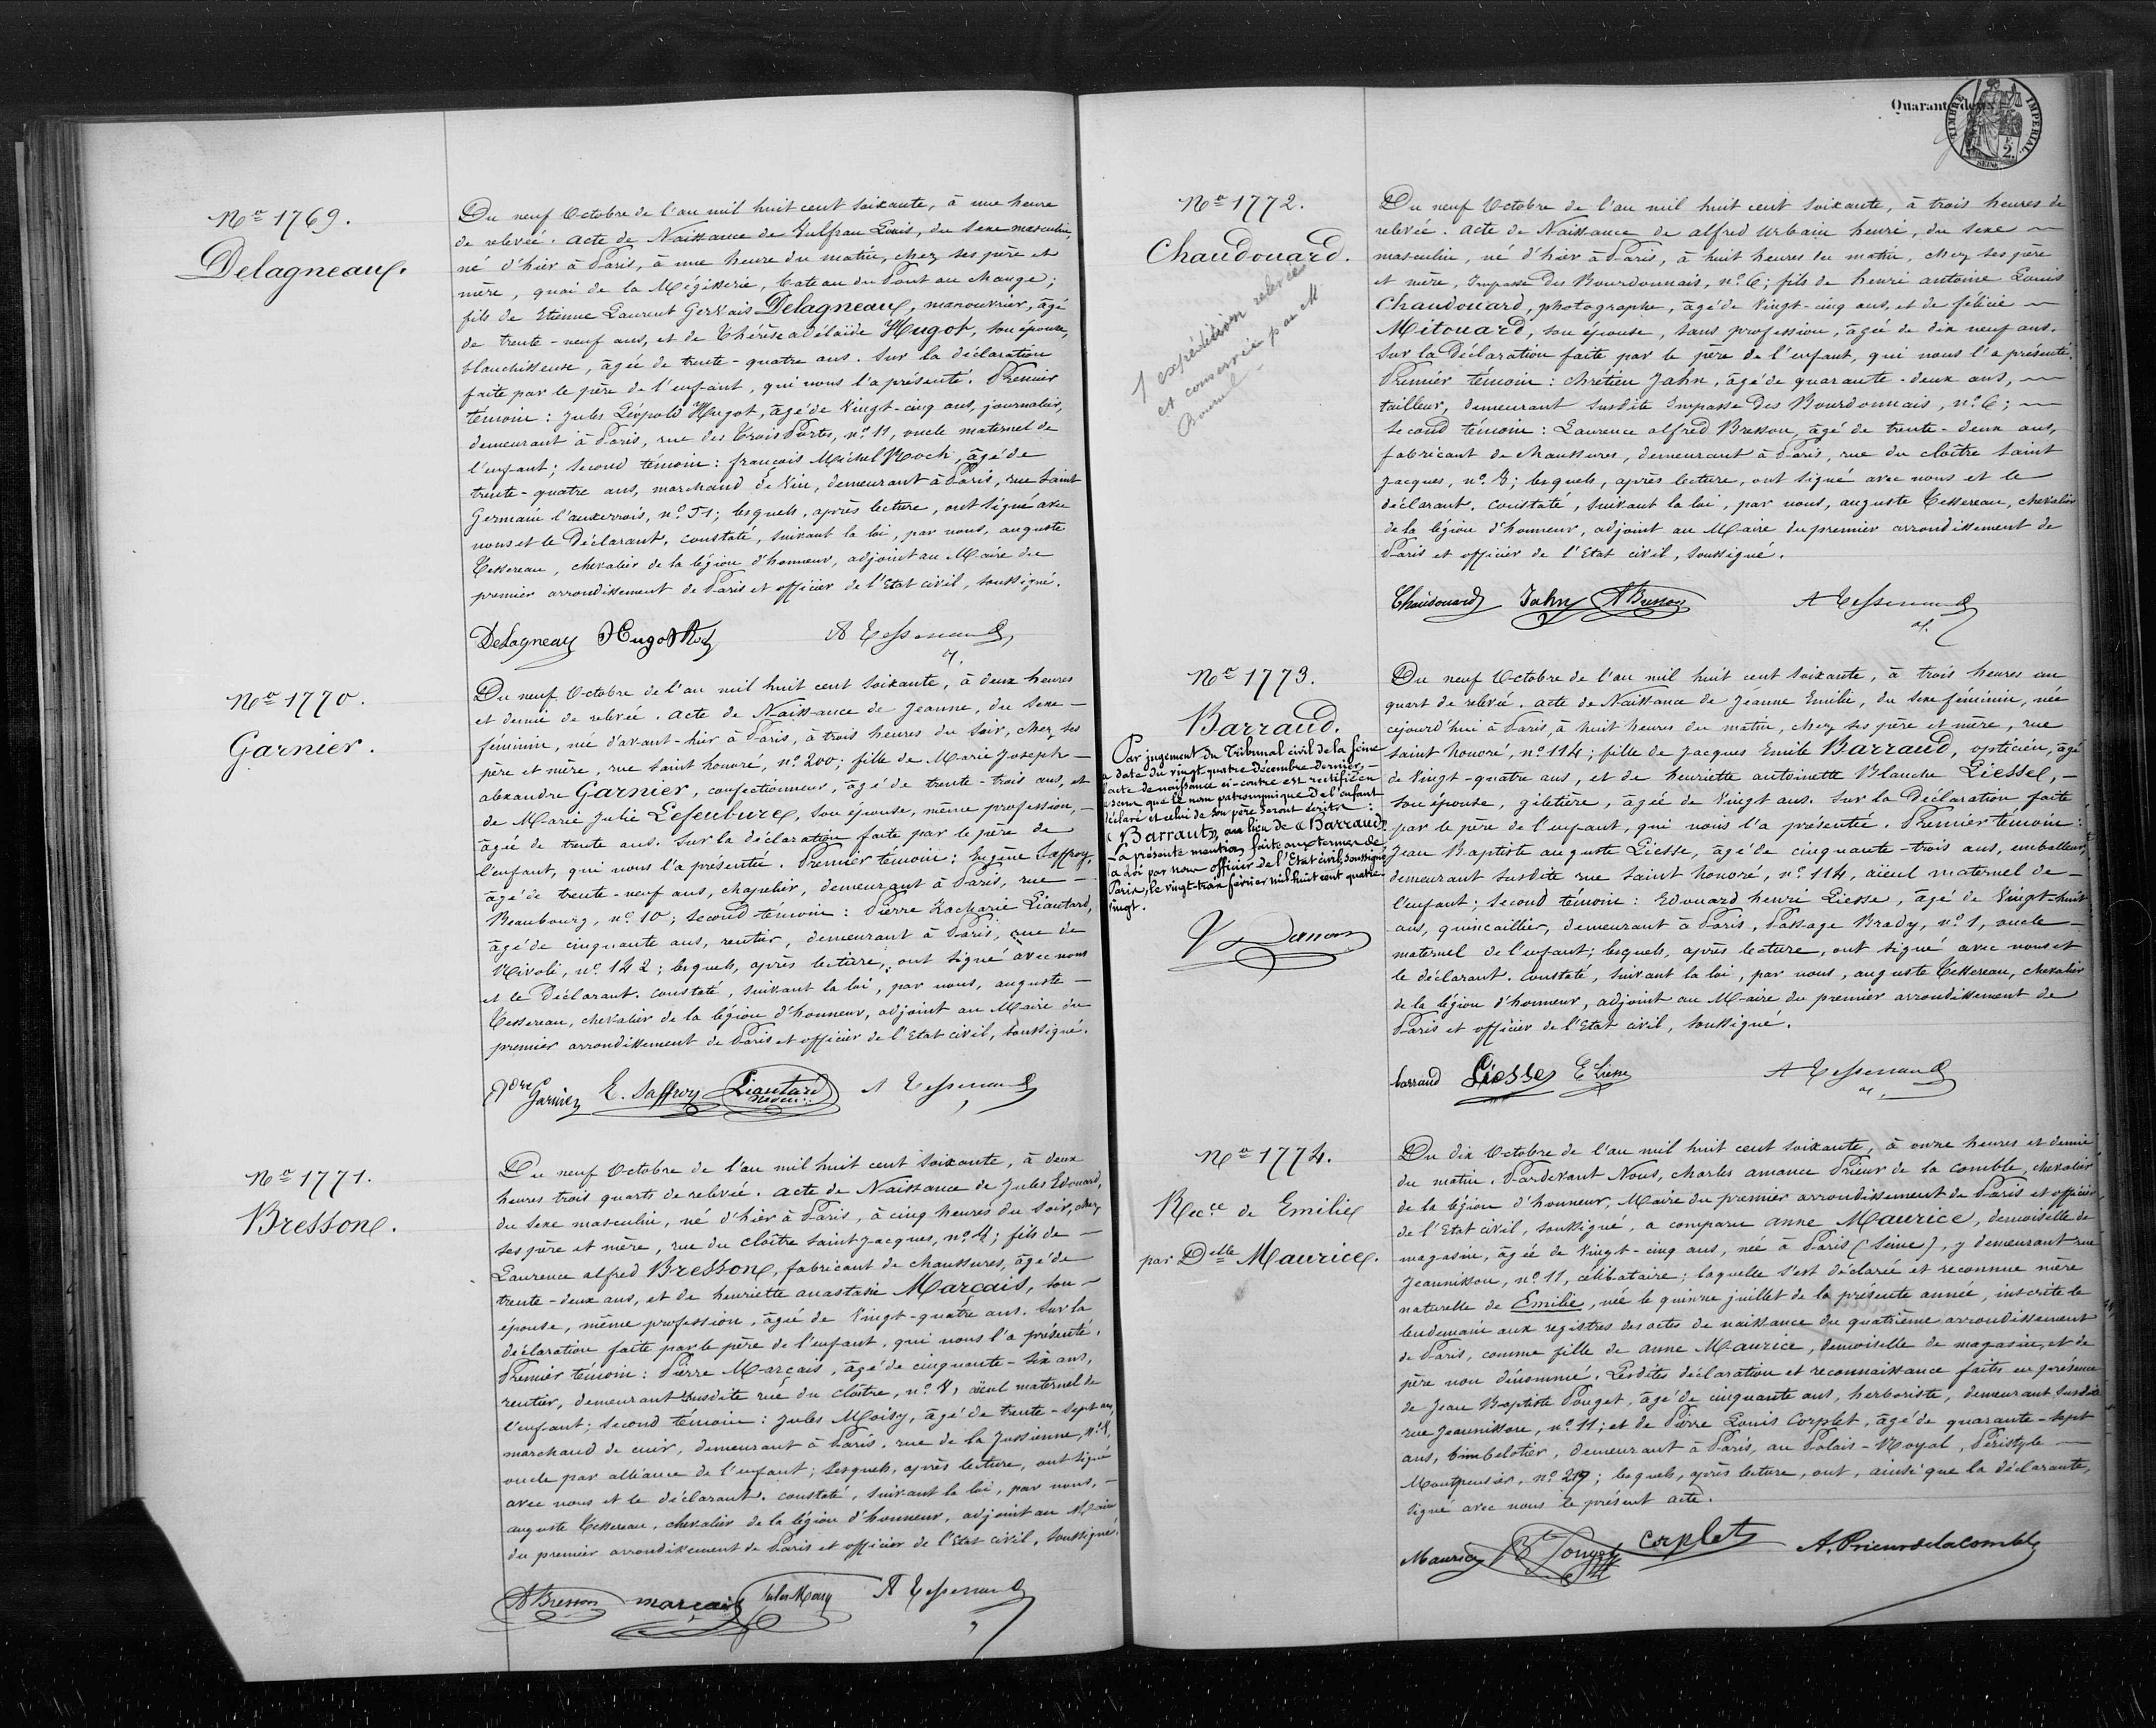 Nº 1769.
Delagneau.
Du neuf Octobre de l'an mil huit cent soixante, à une heure
de relevée. acte de Naissance de Vulfran Louis, du sexe masculin,
né d'hier à Paris, à une heure du matin, chez ses père et
mère, quai de la Mégisserie, bateau du Pont au change;
fils de Etienne Laurent Gervais Delagneau, manouvrier, âgé
de trente-neuf ans, et de Thérèse adélaïde Hugot, son épouse,
blanchisseuse, âgée de trente-quatre ans. Sur la déclaration
faite par le père de l'enfant, qui nous l'a présenté. Premier
témoin: Jules Léopold Hugot, âgé de vingt-cinq ans, journalier,
demeurant à Paris, rue des Trois Portes, nº 11, oncle maternel de
l'enfant; second témoin: françois Michel Roch, âgé de
trente-quatre ans, marchand de vin, demeurant à Paris, rue Saint
Germain l'auxerrois, nº 51; lesquels, après lecture, ont signé avec
nous et le Déclarant. constaté, suivant la loi, par nous, auguste
Tessereau, chevalier de la légion d'honneur, adjoint au Maire du
premier arrondissement de Paris et officier de l'Etat civil, soussigné.
Delagneau Hugot Roch A Tessereau
Nº 1770.
Garnier.
Du neuf Octobre de l'an mil huit cent soixante, à deux heures
et demie de relevée. acte de Naissance de Jeanne, du sexe —
féminin, née d'avant-hier à Paris, à trois heures du soir, chez ses
père et mère, rue Saint honoré, nº 200; fille de Marie Joseph —
alexandre Garnier, confectionneur, âgé de trente-trois ans, et
de Marie Julie Lefeubure, son épouse, même profession, —
âgée de trente ans. Sur la déclaration faite par le père de
l'enfant, qui nous l'a présentée. Premier témoin: Eugène Saffroy,
âgé de trente-neuf ans, chapelier, demeurant à Paris, rue —
Beaubourg, nº 10; second témoin: Pierre Zacharie Liautard,
âgé de cinquante ans, rentier, demeurant à Paris, rue de
Rivoli, nº 142; lesquels, après lecture, ont signé avec nous
et le Déclarant. constaté, suivant la loi, par nous, auguste —
Tessereau, chevalier de la légion d'honneur, adjoint au Maire du
premier arrondissement de Paris et officier de l'Etat civil, soussigné.
Garnier E. Saffroy Liautard A Tessereau
Nº 1771.
Bresson.
Du neuf Octobre de l'an mil huit cent soixante, à deux
heures trois quarts de relevée. acte de Naissance de Jules Edouard,
du sexe masculin, né d'hier à Paris, à cinq heures du soir, chez
ses père et mère, rue du cloître Saint Jacques, nº 8; fils de —
Laurence alfred Bresson, fabricant de chaussures, âgé de
trente-deux ans, et de henriette anastasie Marçais, son —
épouse, même profession, âgée de vingt-quatre ans. Sur la
déclaration faite par le père de l'enfant, qui nous l'a présenté.
Premier témoin: Pierre Marçais, âgé de cinquante-six ans,
rentier, demeurant susdite rue du cloître, nº 8, aïeul maternel de
l'enfant; second témoin: Jules Moisy, âgé de trente-sept ans,
marchand de cuir, demeurant à Paris, rue de la Jussienne, nº 8,
oncle par alliance de l'enfant; lesquels, après lecture, ont signé
avec nous et le déclarant. constaté, suivant la loi, par nous, —
auguste Tessereau, chevalier de la légion d'honneur, adjoint au Maire
du premier arrondissement de Paris et officier de l'Etat civil, soussigné.
A Bresson marçais Jules Moisy A Tessereau
Quarante deux
TIMBRE IMPERIAL.
2.
SEINE
Nº 1772.
Chaudouard.
1 expédition relevée
et conservée par M
Du neuf Octobre de l'an mil huit cent soixante, à trois heures de
relevée. acte de Naissance de alfred urbain henri, du sexe —
masculin, né d'hier à Paris, à huit heures du matin, chez ses père
et mère, Impasse des Bourdonnais, nº 6; fils de henri antoine Louis
Chaudouard, photographe, âgé de vingt-cinq ans, et de félicie —
Mitouard, son épouse, sans profession, âgée de dix neuf ans.
Sur la Déclaration faite par le père de l'enfant, qui nous l'a présenté.
Premier témoin: chrétien Jahn, âgé de quarante-deux ans, —
tailleur, demeurant susdite Impasse des Bourdonnais, nº 6; —
second témoin: Laurence alfred Bresson, âgé de trente-deux ans,
fabricant de chaussures, demeurant à Paris, rue du cloître Saint
Jacques, nº 8; lesquels, après lecture, ont signé avec nous et le
déclarant. constaté, suivant la loi, par nous, auguste Tessereau, chevalier
de la légion d'honneur, adjoint au Maire du premier arrondissement de
Paris et officier de l'Etat civil, soussigné.
Chaudouard Jahn A Bresson A Tessereau
Nº 1773.
Barraud.
Par jugement du Tribunal civil de la Seine
a date du vingt quatre Décembre dernier, —
l'acte de naissance ci-contre est rectifié en
ce sens que le nom patronymique de l'enfant
déclaré et celui de son père seront écrits:
« Barraut » au lieu de « Barraud »
La présente mention faite aux termes de
la Loi par nous officier de l'Etat civil, soussigné
Paris, le vingt-trois février mil huit cent quatre-
vingt.
Du neuf Octobre de l'an mil huit cent soixante, à trois heures un
quart de relevée. acte de Naissance de Jeanne Emilie, du sexe féminin, née
cejourd'hui à Paris, à huit heures du matin, chez ses père et mère, rue
saint honoré, nº 114; fille de Jacques Emile Barraud, opticien, âgé
de vingt-quatre ans, et de henriette antoinette Blanche Liesse, —
son épouse, giletière, âgée de vingt ans. Sur la Déclaration faite
par le père de l'enfant, qui nous l'a présentée. Premier témoin:
Jean Baptiste auguste Liesse, âgé de cinquante-trois ans, emballeur,
demeurant susdite rue saint honoré, nº 114, aïeul maternel de —
l'enfant; second témoin: Edouard henri Liesse, âgé de vingt-huit
ans, quincaillier, demeurant à Paris, Passage Brady, nº 1, oncle —
maternel de l'enfant; lesquels, après lecture, ont signé avec nous et
le déclarant. constaté, suivant la loi, par nous, auguste Tessereau, chevalier
de la légion d'honneur, adjoint au Maire du premier arrondissement de
Paris et officier de l'Etat civil, soussigné.
barraud Liesse E Liesse A Tessereau
Nº 1774.
Recce de Emilie
par Delle Maurice.
Du dix Octobre de l'an mil huit cent soixante, à onze heures et demie
du matin. Pardevant Nous, charles amance Prieur de la comble, chevalier
de la légion d'honneur, Maire du premier arrondissement de Paris et officier
de l'Etat civil, soussigné, a comparu anne Maurice, demoiselle de
magasin, âgée de vingt-cinq ans, née à Paris (Seine), y demeurant rue
Jeannisson, nº 11, célibataire; laquelle s'est déclarée et reconnue mère
naturelle de Emilie, née le quinze juillet de la présente année, inscrite le
lendemain aux registres des actes de naissance du quatrième arrondissement
de Paris, comme fille de anne Maurice, demoiselle de magasin, et de
père non dénommé. Lesdites déclaration et reconnaissance faites en présence
de Jean Baptiste Pouget, âgé de cinquante ans, herboriste, demeurant susdite
rue Jeannisson, nº 11; et de Pierre Louis Corplet, âgé de quarante-sept
ans, bimbelotier, demeurant à Paris, au Palais-Royal, Péristyle —
Montpensier, nº 217; lesquels, après lecture, ont, ainsi que la déclarante,
signé avec nous le présent acte.
Maurice Bte Pouget Corplet A. Prieur de la Comble